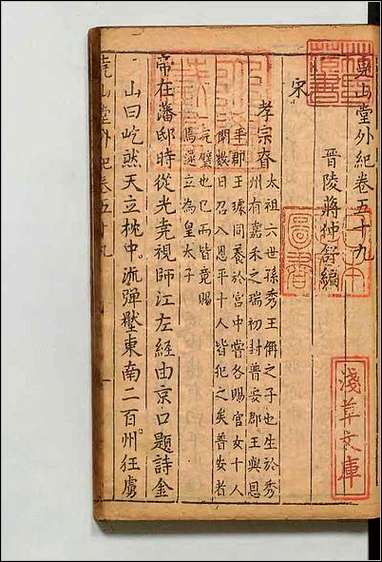 堯山堂外紀卷五十九
晉陵蔣仲舒編
宋
孝宗眘
太祖六世孫秀王偁之子也生於秀
州有嘉禾之瑞初封普安郡王與恩
平郡王璩同養於宮中嘗各賜宮女十人
閱數日召入恩平十人皆犯之矣普安者
完璧也已而皆竟賜
焉遂立為皇太子
帝在藩邸時從光堯視師江左經由京口題詩金
山曰屹然天立枕中流彈壓東南二百州狂虜
堯山堂外紀卷五十九
一
林氏藏書
淺草文庫
圖書